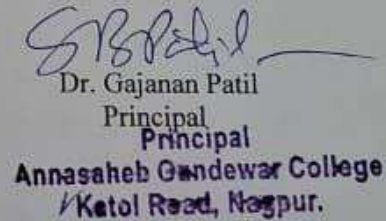 Dr. Gajanan Patil
Principal
Principal
Annasaheb Gundewar College
Katol Road, Nagpur.